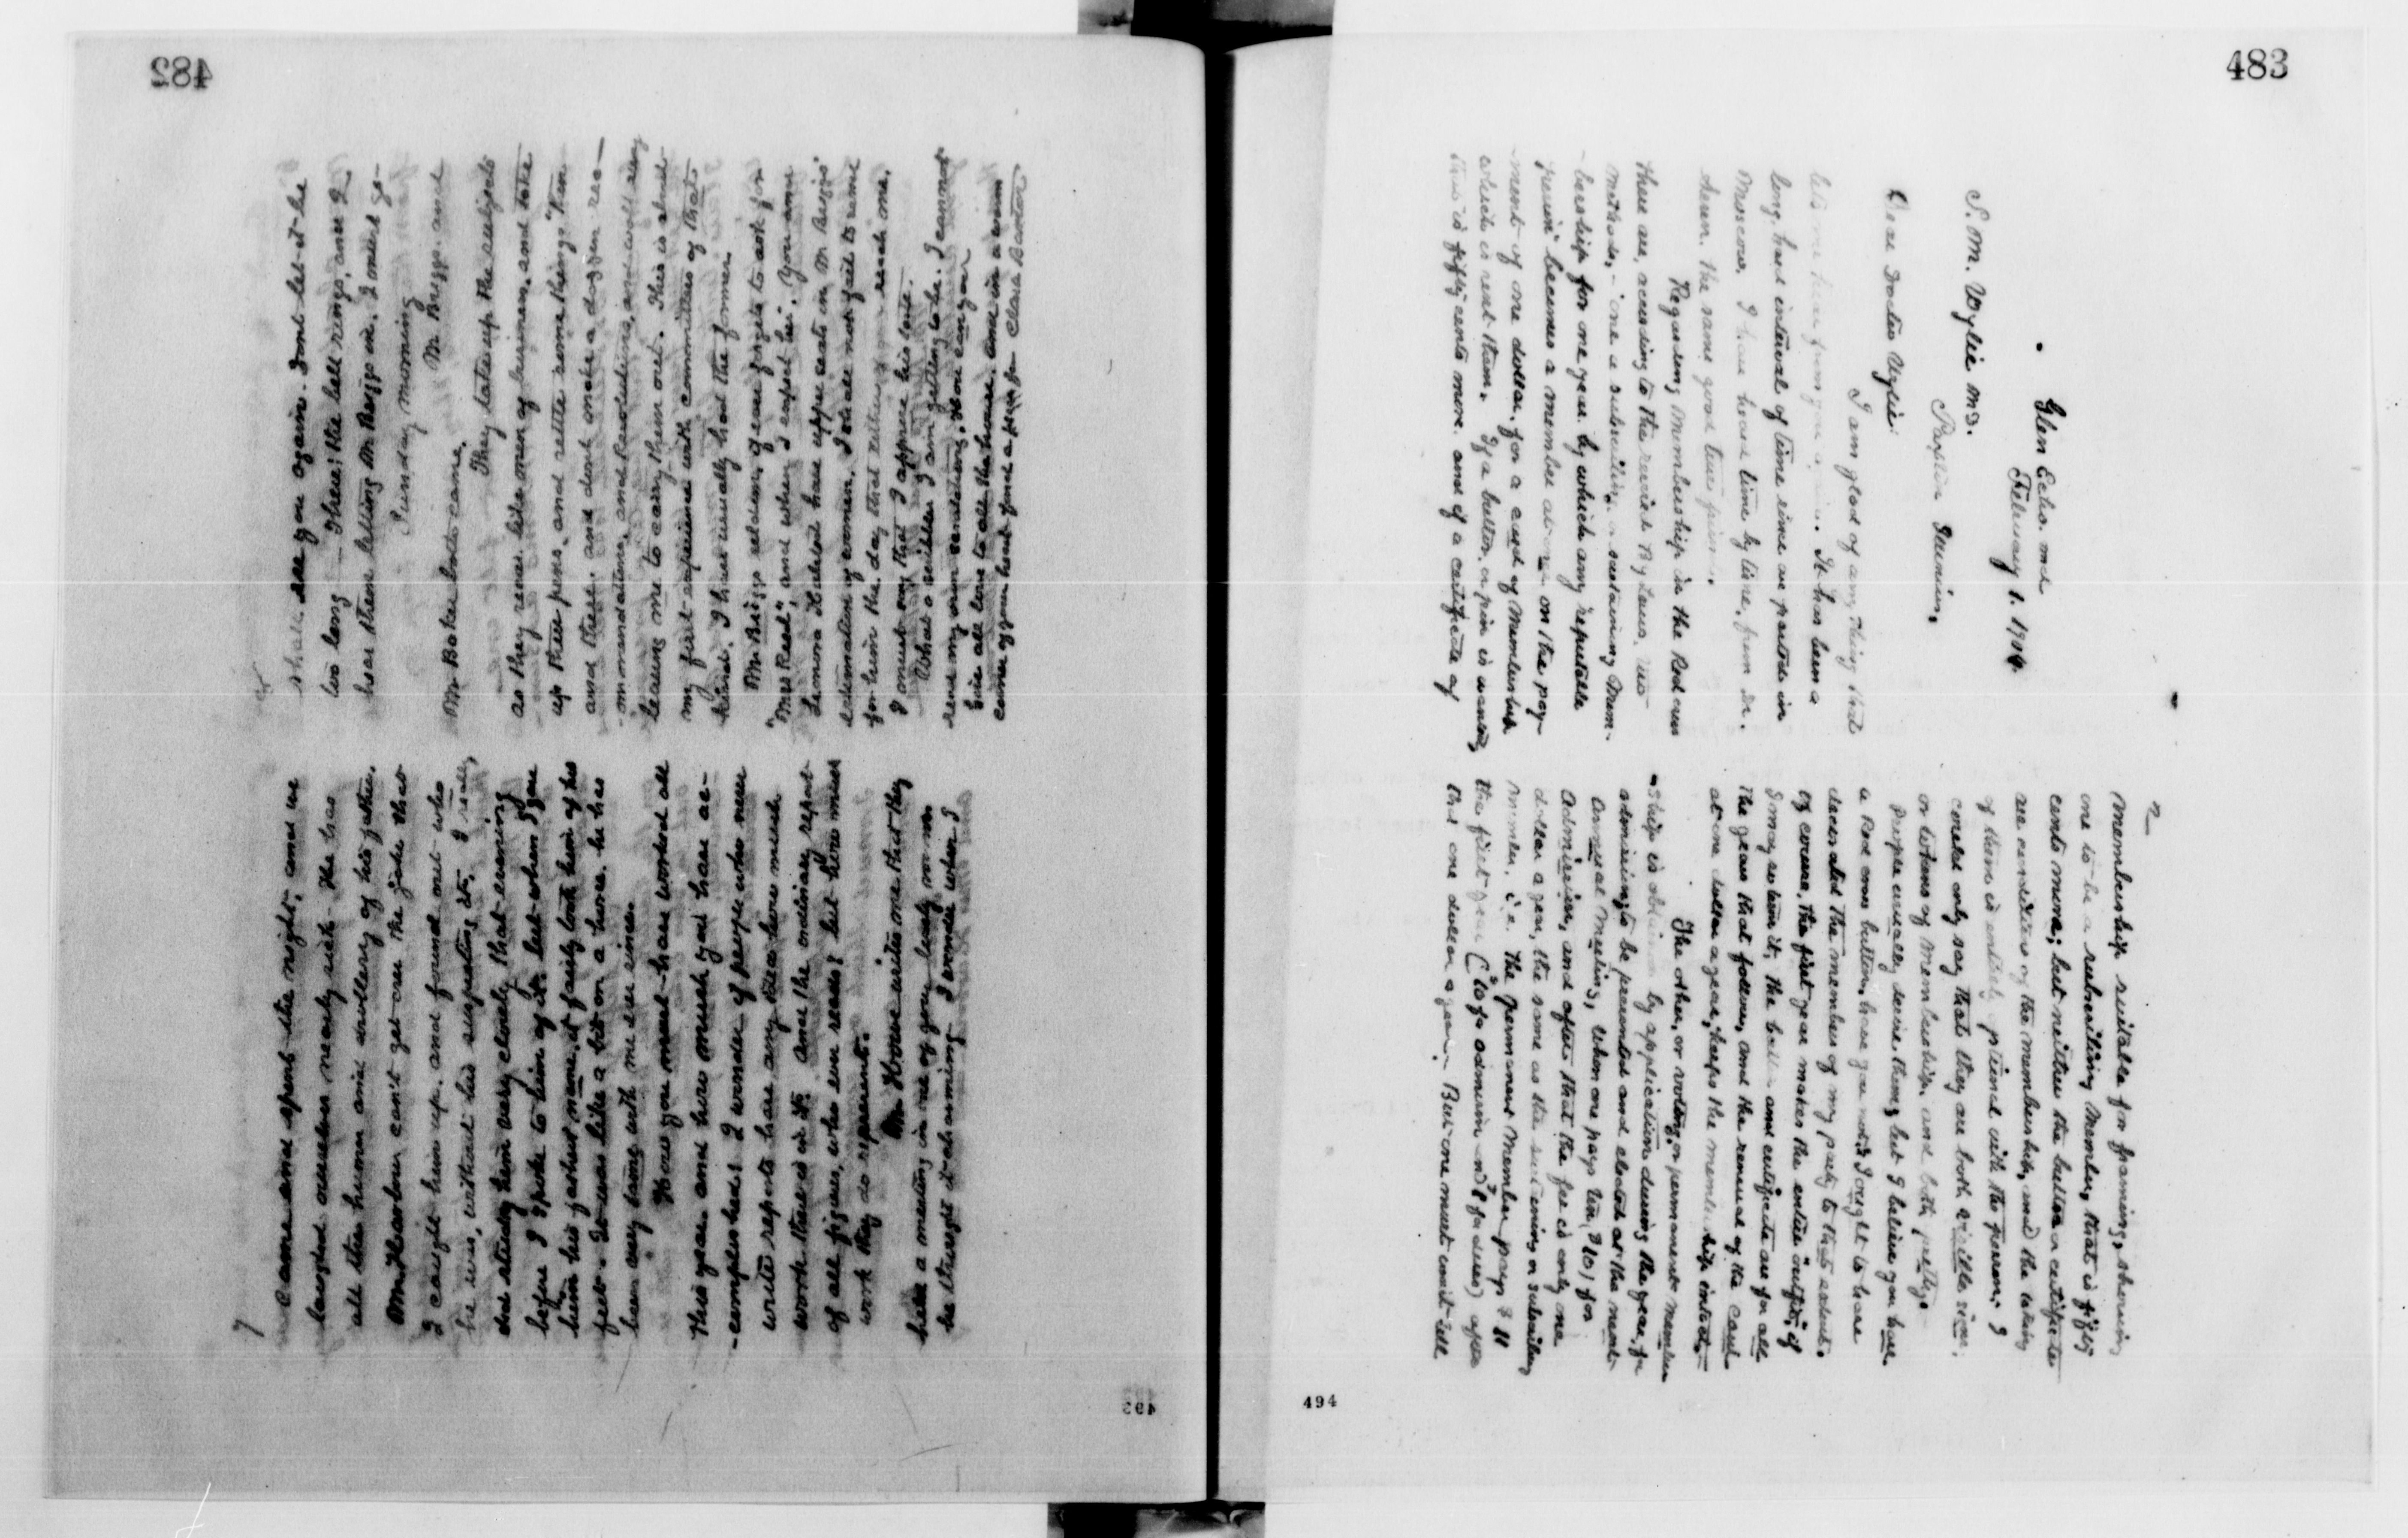 482
7
Came and spent the night, and we
laughed ourselves nearly sick. He has
all the humor and drollery of his father.
Mr. Harbour can't get over the joke that
I caught him up and found out who
he was, without his suspecting it. I really
did study him very closely that evening
before I spoke to him of it but when I gave
him his father's name, it fairly took him off his
feet. It was like a bit on a horse. he has
been very tame with me ever since.
How you must have worked all
this year and how much you have ac-
complished. I wonder if people who never
write reports have any idea how much
work there is in it. And the ordinary report
of all figures, who ever reads? but how much
work they do represent.
Mr. Howe writes me that they
held a meeting in one of your lovely rooms
he thought it charming. I wonder when I
shall see you again. Dont let it be
too long — There; the bell rings, and I
hear them letting Mr Briggs in. I must go—
Sunday morning
Mr Briggs and
Mr Baker both came.
They take up the subjects
as they receive like men of business, and take
up their pens, and settle some things "then
and there" and dont make a dozen rec—
ommendations, and Resolutions, and will away
leaving me to carry them out. This is about
my first experience with committees of that
kind. I have usually had the former.
Mr Briggs seldom, if ever forgets to ask for
"Miss Reed", and when I expect her". You and
Lenora Halsted have upper seats in Mr Briggs'
estimation of women. I shall not fail to send
for him the day that either of you reach me.
I must say that I approve his taste.
What a scribbler I am getting to be. I cannot
read my own scribbling. How can you
Give all love to all the house, and in a warm
corner of your heart find a place for Clara Barton
493
483
Glen Echo. Md
February 1. 1904.
S. M. Wylie M.D.
Paxton Illinois.
Dear Doctor Wylie:
I am glad of any thing that
lets me hear from you again. It has been a
long, hard interval of time since we parted in
Moscow. I have heard time by time, from Dr.
Senn. the same good true friend.
Regarding Membership in the Red Cross
there are, according to the revised By Laws two
methods, - one a subscribing or sustaining Mem-
bership for one year. by which any "reputable
person" becomes a member at once on the pay-
ment of one dollar, for a card of Membership
which is sent them. If a button, or pin is wanted
this is fifty cents more. and if a certificate of
2
Membership suitable for framing, showing
one to be a subscribing Member, that is fifty
cents more; but neither the button or certificate
are conditions of the membership, and the taking
of them is entirely optional with the person; I
could only say that they are both visible signs,
or tokens of Membership, and both pretty.
People usually desire them, but I believe you have
a Red Cross button, have you not? I ought to have
decorated the members of my party to that extent.
Of course, the first year makes the entire "outfit", if
I may so term it, the button and certificate are for all
the years that follow, and the renewal of the card
at one dollar a year, keeps the membership intact.—
The other, or voting, or permanent member
-ship is obtained by application during the year, for
admission, to be presented and elected at the next
Annual Meeting, when one pays ten, $10) for
Admission, and after that the fee is only one
dollar a year, the same as the sustaining or subscribing
member. i.e. the permanent Member pays $11
the first year ($10 for admission and $1 for dues) after
that one dollar a year. But one must wait till
494